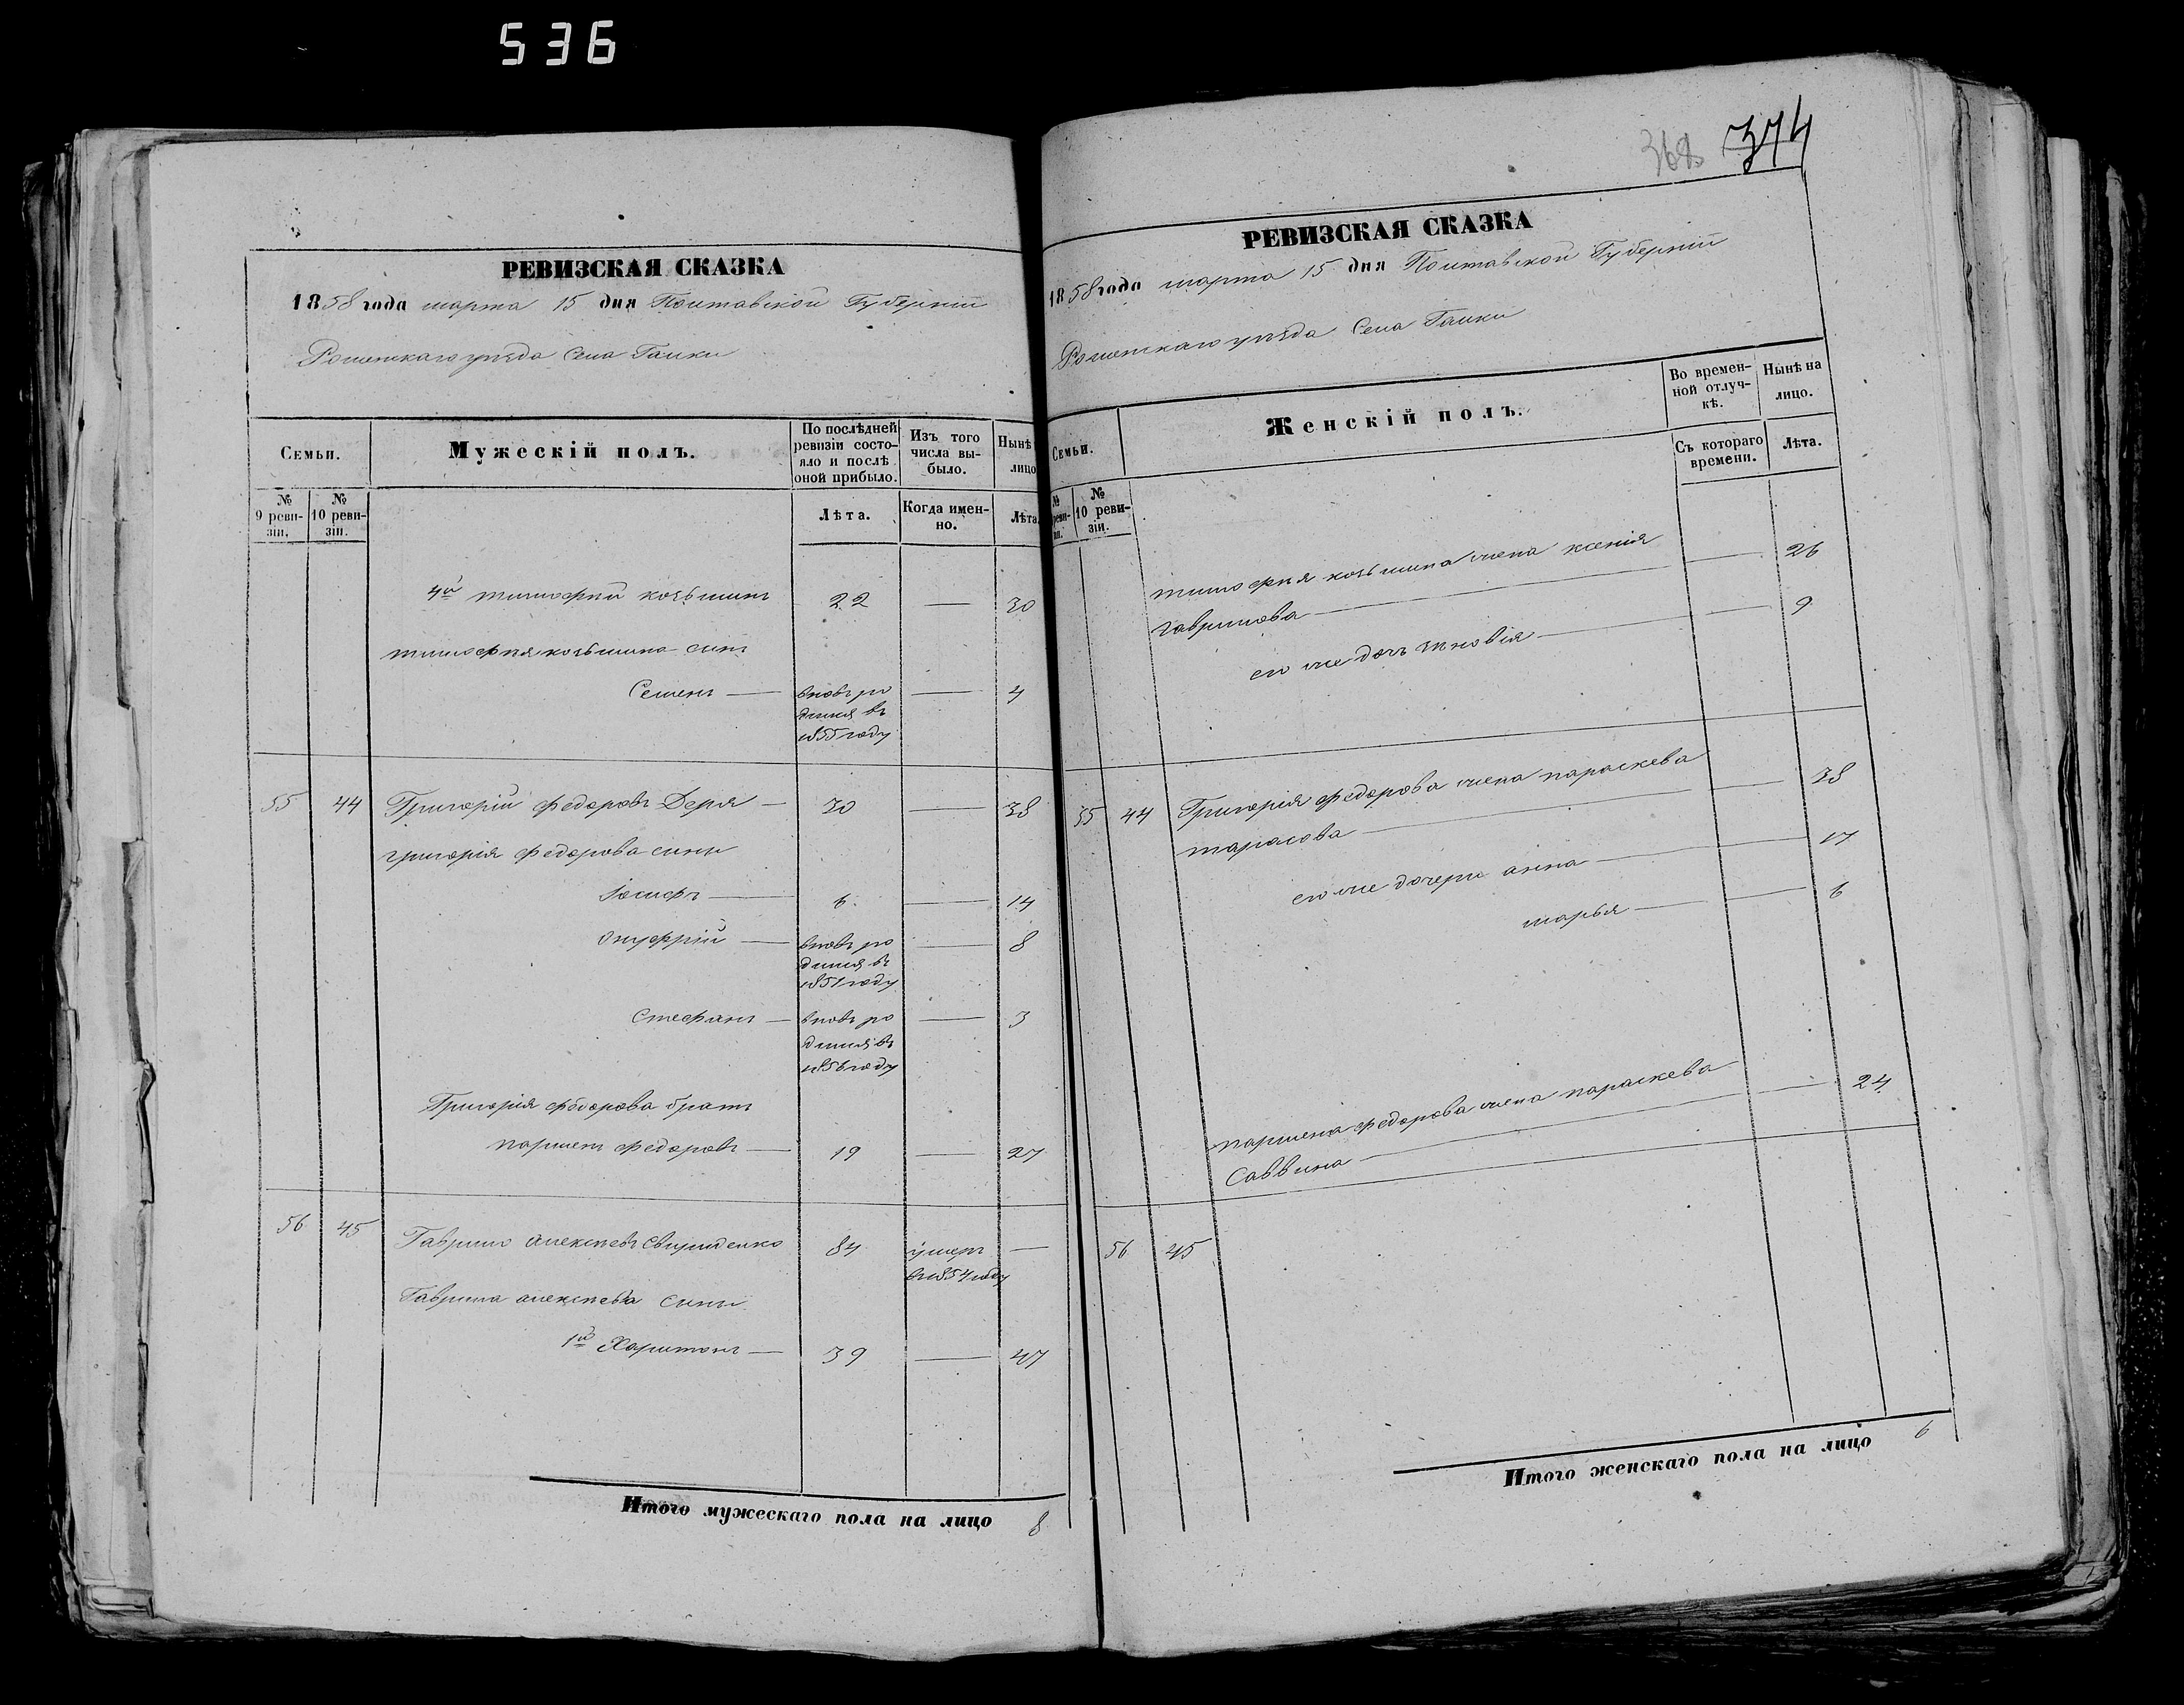 536
РЕВИЗСКАЯ СКАЗКА
1858 года марта 15 дня Полтавской Губерніи
Роменскаго уѣзда Села Галки
Семьи.
Мужескій полъ.
По послѣдней ревизіи состояло и послѣ оной прибыло.
Изъ того числа выбыло.
Нынѣ
лицо
№ 9 ревизіи.
№ 10 ревизіи.
Лѣта.
Когда именно.
Лѣта.
4й тимофѣй козьминъ 22 — 30
тимофѣя козьмина сынъ
Семенъ — вновь ро — 4
дился въ
1855 году
55 44 Григорій федоровъ Деря — 30 — 38
григорія федорова сыны
Іосифъ — 6 — 14
Онуфрій — вновь ро — 8
дился въ
1851 году
Стефанъ — вновь ро — 3
дился въ
1856 году
Григорія федорова братъ
парменъ федоровъ — 19 — 27
56 45 Гаврило алексѣевъ Свириденко 84 умеръ —
въ 1854 году
Гаврила алексѣева сыны
1й Харитонъ — 39 — 47
Итого мужескаго пола на лицо 8
368 374
РЕВИЗСКАЯ СКАЗКА
1858 года марта 15 дня Полтавской Губерніи
Роменскаго уѣзда Села Галки
Семьи.
Женскій полъ.
Во временной отлучкѣ.
Нынѣ на лицо.
№ 10 ревизіи.
Съ котораго времени.
Лѣта.
тимофѣя козьмина жена ксенія
гаврилова — — 26
его же дочь зиновія — — 9
55 44 Григорія федорова жена параскева
тарасова — — 38
его же дочери анна — — 17
марья — — 6
пармена федорова жена параскева
Саввина — — 24
56 45
Итого женскаго пола на лицо 6